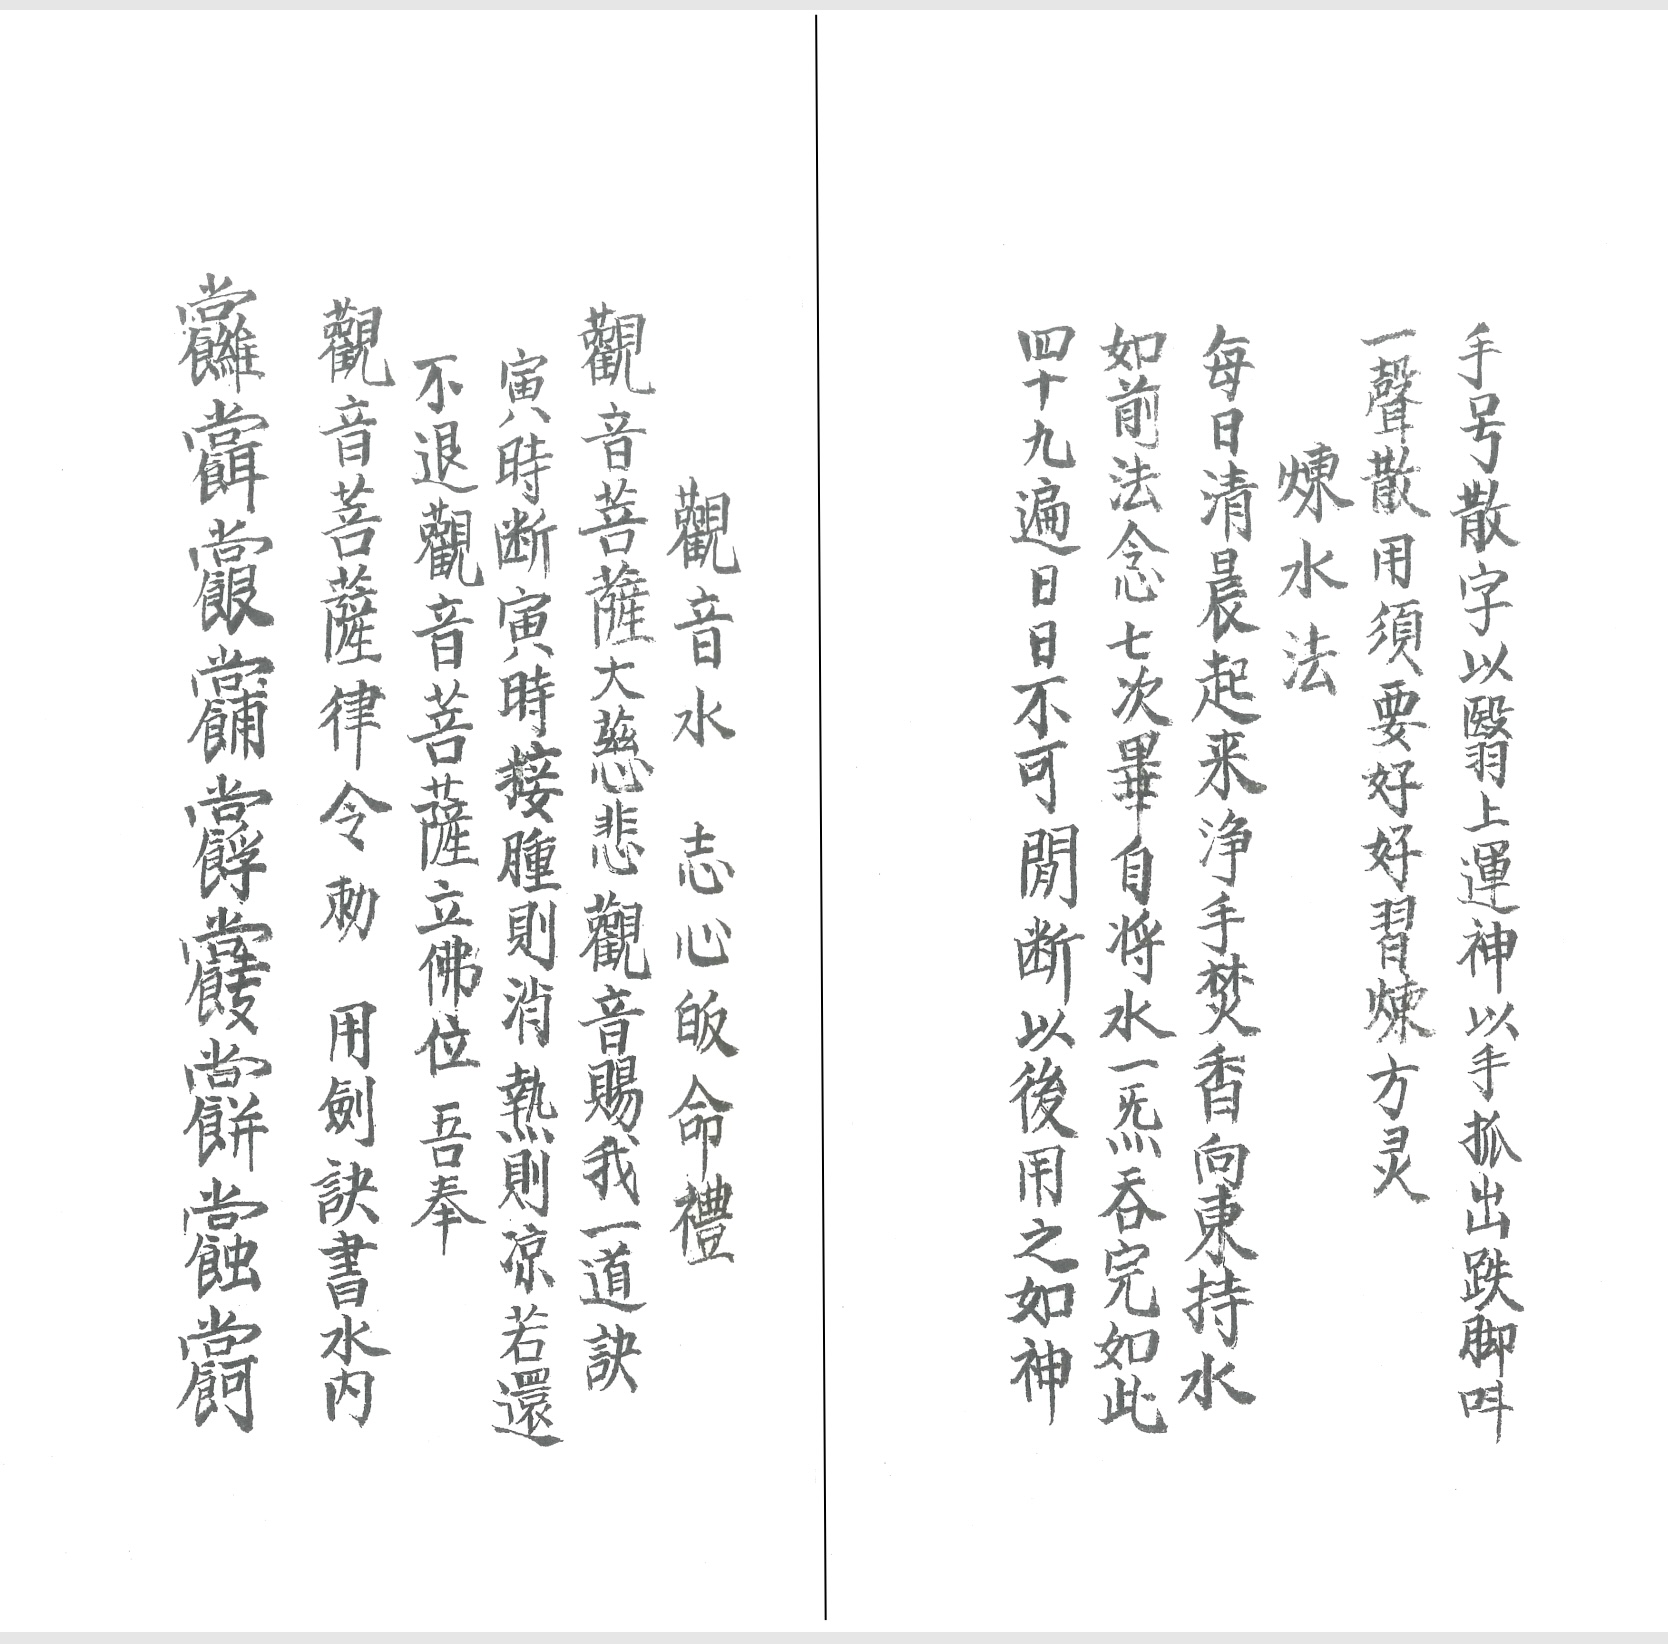 手号散字以翳上運神以手抓出跌脚呌
一聲散用須要好好習煉方灵
煉水法
每日清晨起来净手焚香向東持水
如前法念七次畢自将水一炁吞完如此
四十九遍日日不可閒断以後用之如神
觀音水 志心皈命禮
觀音菩薩大慈悲觀音賜我一道訣
寅時断寅時接腫則消熱則凉若還
不退觀音菩薩立佛位 吾奉
觀音菩薩律令勅 用劍訣書水内